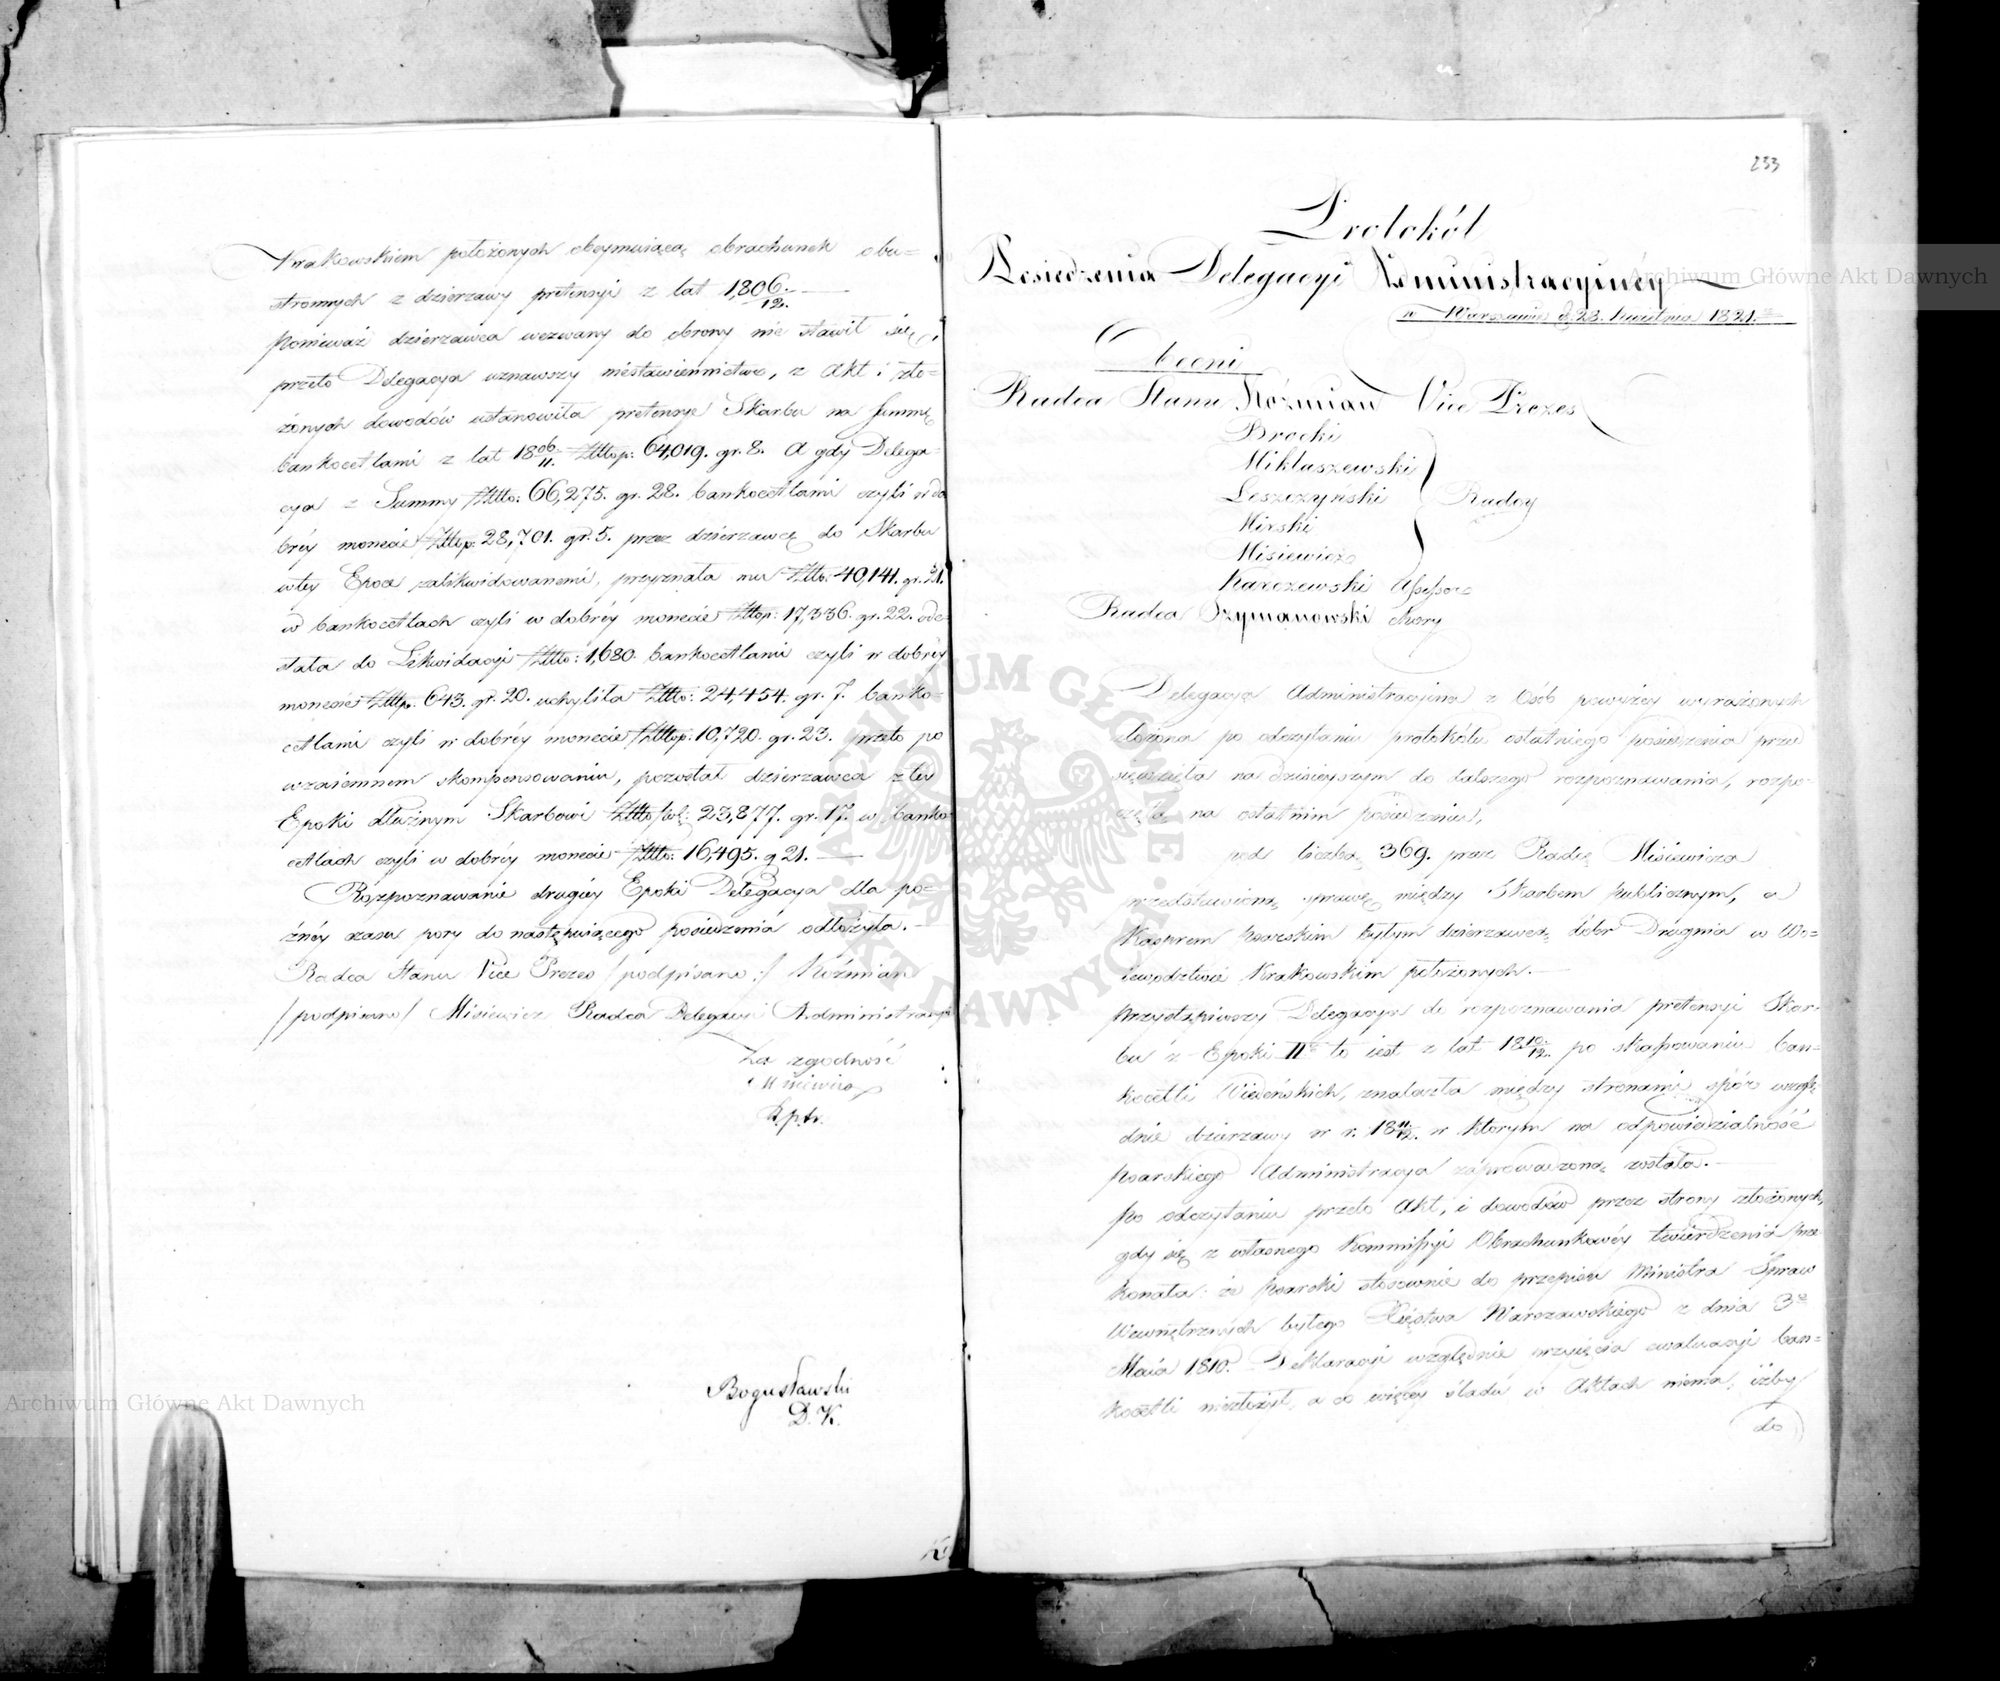 Krakowskiem położonych obeymuiącą obrachunek obu=
stronnych z dzierzawy pretensyi z lat 1,806/12.
Ponieważ dzierzawca wezwany do obrony nie stawił się,
przeto Delegacya uznawszy niestawiennictwo, z Akt i zło=
żonych dowodów ustanowiła pretensye Skarbu na Summę
bankocetlami z lat 1806/11. Złtp: 64,019. gr. 8. A gdy Delega=
cya z Summy Złto: 66,275. gr. 28. bankocetlami czyli w do
bréy monecie Złtp. 28,701. gr. 5. przez dzierzawcę do Skarbu
w tey Epoce zalikwidowanemi, przyznała mu Złto: 40,141. gr. 21.
w bankocetlach czyli w dobréy monecie Złtp: 17,336. gr. 22. ode=
słała do Likwidacyi Złto: 1,680. bankocetlami czyli w dobréy
monecie Złtp. 643. gr. 20. uchyliła Złto: 24,454. gr. 7. banko=
cetlami czyli w dobréy monecie Złtop: 10,720. gr. 23. przeto po
wzaiemnem skompensowaniu, pozostał dzierzawca z tey
Epoki dłużnym Skarbowi Złto pol: 23,877. gr. 17. w banko
cetlach czyli w dobréy monecie Złto: 16,495. g 21.
Rozpoznawanie drugiey Epoki Delegacya dla po=
źnéy czasu pory do następuiącego posiedzenia odłożyła.
Radca Stanu Vice Prezes /podpisano:/ Koźmian
/podpisano/ Misiewicz Radca Delegacyi Administracyi
Za zgodność
Misiewicz
Bogusławski
D. K.
233
Protokół
Posiedzenia Delegacyi Administracyinéy
w Warszawie d. 28. Kwietnia 1821.
Obecni
Radca Stanu Koźmian Vice Prezes
Brocki
Miklaszewski
Leszczyński Radcy
Mirski
Misiewicz
Karczewski Assessor
Radca Szymanowski
Delegacya Administracyina z Osób powyżey wyrażonych
złożona po odczytaniu protokółu ostatniego posiedzenia prze
sięwzięła na dzisieyszym do dalszego rozpoznawania, rozpo=
czętą na ostatnim posiedzeniu,
pod liczbą 369. przez Radcę Misiewicza
przedstawioną sprawę między Skarbem publicznym, a
Kasprem Psarskim byłym dzierzawcą dóbr Drugnia w Wo=
iewodztwie Krakowskim położonych.
Przystąpiwszy Delegacya do rozpoznawania pretensyi Skar=
bu z Epoki II to iest z lat 1810/12. po skassowaniu ban=
kocetli Wiedeńskich, znalazła między stronami spór wzglę
dnie dzierzawy w r. 1811/12. w ktorym na odpowiedzialność
Psarskiego Administracya zaprowadzoną została.
Po odczytaniu przeto Akt, i dowodów przez strony złożonych,
gdy się z własnego Kommissyi Obrachunkowéy twierdzenia prze
konała: że Psarski stosownie do przepisu Ministra Spraw
Wewnętrznych byłego Xięstwa Warszawskiego z dnia 3
Maia 1810. Deklaracyi względnie przyięcia ewaluacyi ban=
kocetli niezłożył, a co więcey śladu w Aktach niema, iżby
do
Archiwum Główne Akt Dawnych
Archiwum Główne Akt Dawnych
ARCHIWUM GŁÓWNE AKT DAWNYCH